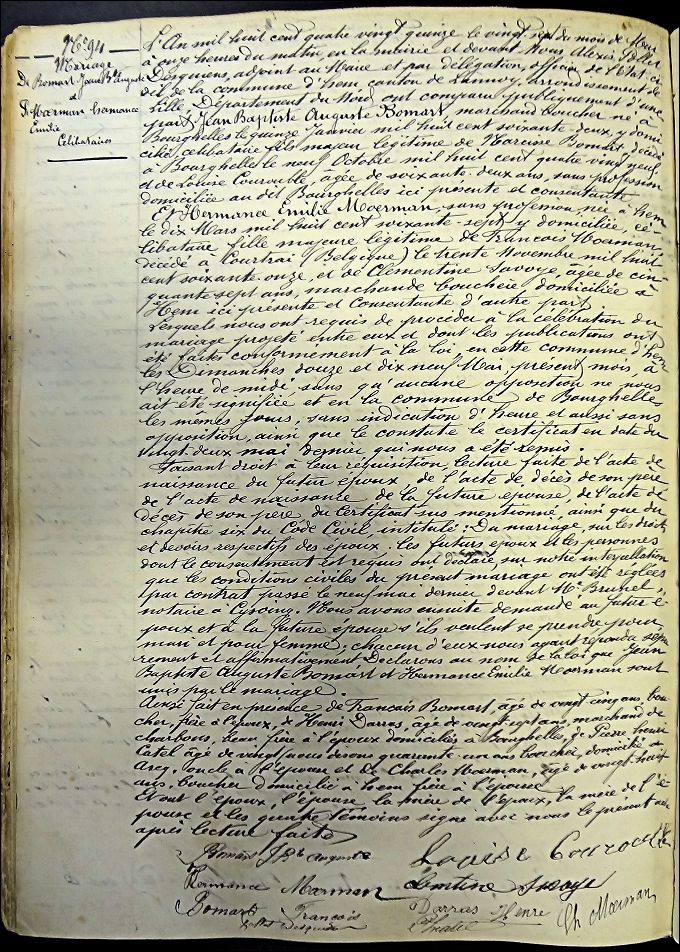 N° 94
Mariage
De Bomart Jean Bte Auguste
et
De Moerman Hermance
Emilie
Célibataires
L'An mil huit cent quatre vingt quinze le vingt sept du mois de Mai
à onze heures du matin, en la mairie et devant Nous Alexis Pollet
Desquiens, adjoint au Maire et par délégation, officier de l'Etat ci
vil de la commune d'hem, canton de Lannoy, arrondissement de
Lille Département du Nord, ont comparu publiquement d'une
part, Jean Baptiste Auguste Bomart, marchand boucher né à
Bourghelles le quinze Janvier mil huit cent soixante deux, y domi
cilié, célibataire fils majeur légitime de Narcisse Bomart, décédé
à Bourghelles le neuf Octobre mil huit cent quatre vingt neuf,
et de Louise Courouble, âgée de soixante deux ans, sans profession
domiciliée au dit Bourghelles ici présente et consentante
Et Hermance Emilie Moerman, sans profession, née à hem
le dix Mars mil huit cent soixante sept, y domiciliée, cé
libataire fille majeure légitime de Francois Moerman,
décédé à Courtrai (Belgique) le trente Novembre mil huit
cent soixante onze, et de Clémentine Savoye, âgée de cin
quante sept ans, marchande bouchère, domiciliée à
Hem ici présente et consentante d'autre part
Lesquels nous ont requis de procéder à la célébration du
mariage projeté entre eux et dont les publications ont
été faites conformément à la loi, en cette commune d'hem
les Dimanches douze et dix neuf Mai, présent mois, à
l'heure de midi sans qu'aucune opposition ne nous
ait été signifiée et en la commune de Bourghelles
les mêmes jours, sans indication d'heure et aussi sans
opposition, ainsi que le constate le certificat en date du
vingt deux mai dernier qui nous a été remis.
Faisant droit à leur réquisition, lecture faite de l'acte de
naissance du futur époux, de l'acte de décès de son père
de l'acte de naissance de la future épouse, de l'acte de
décès de son père, du certificat sus mentionné, ainsi que du
chapitre six du Code Civil, intitulé: Du mariage, sur les droits
et devoirs respectifs des époux, les futurs époux et les personnes
dont le consentement est requis ont déclaré, sur notre interpellation
que les conditions civiles du présent mariage ont été réglées
par contrat passé le neuf mai dernier devant Me Brunet,
notaire à Cysoing. Nous avons ensuite demandé au futur é
poux et à la future épouse s'ils veulent se prendre pour
mari et pour femme, chacun d'eux nous ayant répondu sépa
rément et affirmativement Déclarons au nom de la loi que Jean
Baptiste Auguste Bomart et Hermance Emilie Moerman sont
unis par le mariage.
Ainsi fait en présence de Francois Bomart, âgé de vingt cinq ans bou
cher, frère à l'époux, de Henri Darras, âgé de vingt sept ans, marchand de
charbons, beau frère à l'époux domiciliés à Bourghelles, de Pierre henri
Catel âgé de vingt nous disons quarante un ans boucher, domicilié à
Ascq, oncle à l'épouse et de Charles Moerman, âgé de vingt huit
ans, boucher domicilié à hem frère à l'épouse
Et ont l'époux, l'épouse, la mère de l'époux, la mère de l'é
pouse et les quatre témoins signé avec nous le présent acte
après lecture faite
Bomart J Bte Auguste
Louise Courouble
Hermance Moerman
Clémentine Savoye
Bomart François
Darras Henri
Ch Moerman
Pollet Desquiens